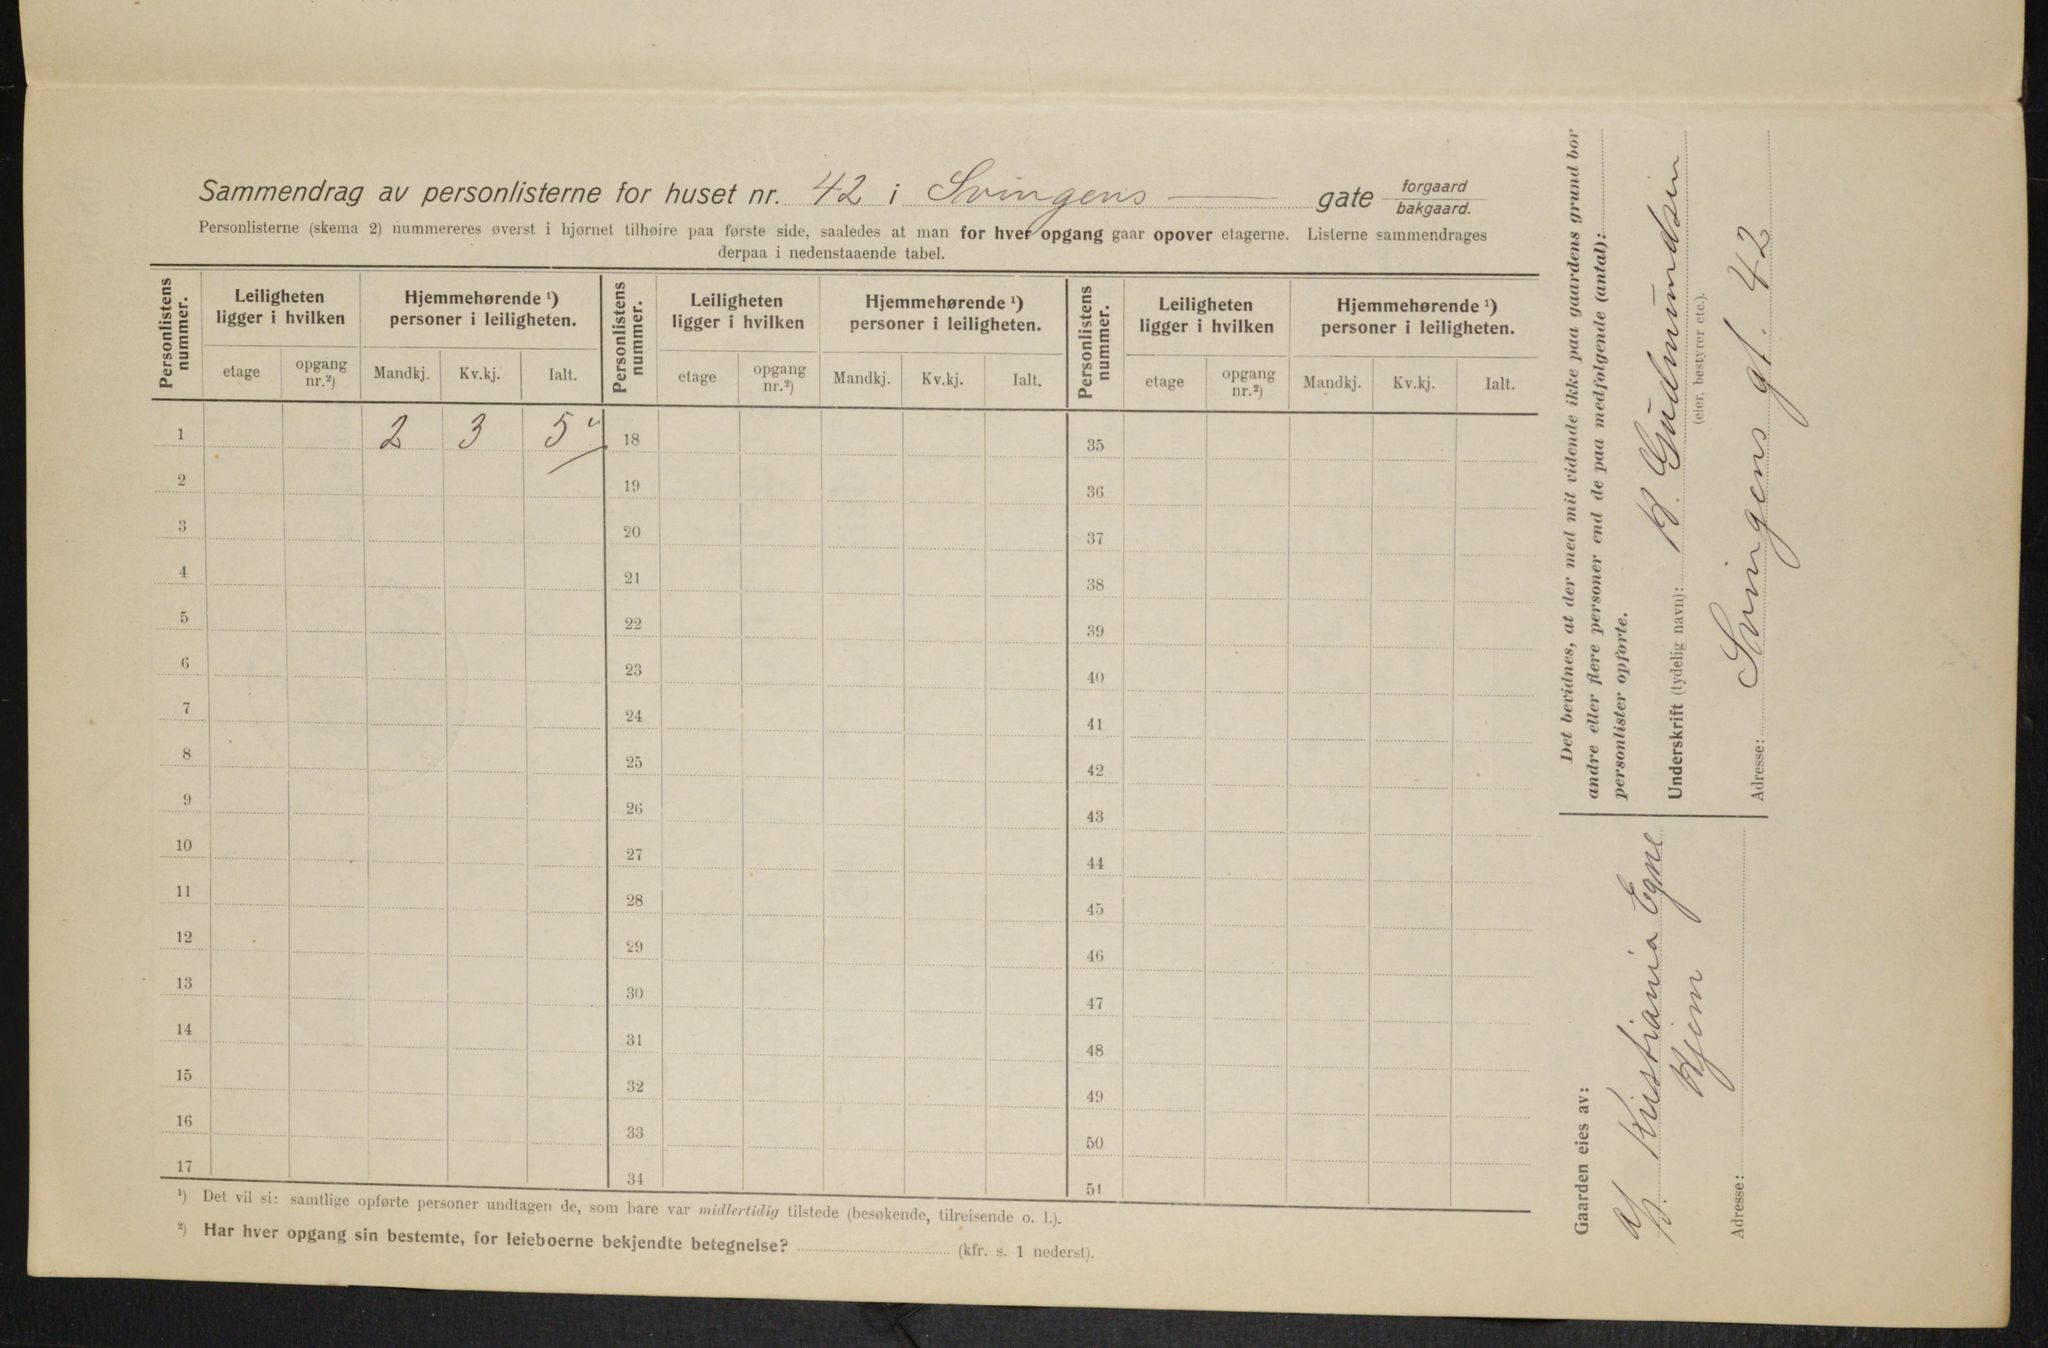 Sammendrag av personlisterne for huset nr. 42 i Svingens gate forgaard bakgaard.
Personlisterne (skema 2) nummereres øverst i hjørnet tilhøire paa første side, saaledes at man for hver opgang gaar opover etagerne. Listerne sammendrages
derpaa i nedenstaaende tabel.
Personlistens nummer. Leiligheten ligger i hvilken Hjemmehørende ¹) personer i leiligheten. Personlistens nummer. Leiligheten ligger i hvilken Hjemmehørende ¹) personer i leiligheten. Personlistens nummer. Leiligheten ligger i hvilken Hjemmehørende ¹) personer i leiligheten.
etage opgang nr.²) Mandkj. Kv.kj. Ialt. etage opgang nr.²) Mandkj. Kv.kj. Ialt. etage opgang nr.²) Mandkj. Kv.kj. Ialt.
1 2 3 5 18 35
2 19 36
3 20 37
4 21 38
5 22 39
6 23 40
7 24 41
8 25 42
9 26 43
10 27 44
11 28 45
12 29 46
13 30 47
14 31 48
15 32 49
16 33 50
17 34 51
¹) Det vil si: samtlige opførte personer undtagen de, som bare var midlertidig tilstede (besøkende, tilreisende o. l.).
²) Har hver opgang sin bestemte, for leieboerne bekjendte betegnelse? (kfr. s. 1 nederst).
Det bevidnes, at der med mit vidende ikke paa gaardens grund bor
andre eller flere personer end de paa medfølgende (antal):
personlister opførte.
Underskrift (tydelig navn): K. Gudmundsen
(eier, bestyrer etc.).
Adresse: Svingens gt. 42
Gaarden eies av:
A/S. Kristiania Egne
Hjem
Adresse: